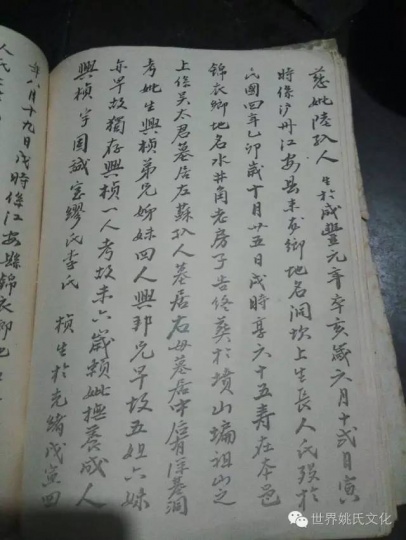 慈妣陸孺人 生於咸豐元年辛亥歲六月十弍日寅
時係泸州江安县来鄉地名洞坎上生長人氏殁於
民國四年乙卯歲十月廿五日戌時享六十五壽在本邑
錦衣鄉地名水井角老房子告終葬於墳山塆祖山之
上伍吴太君墓居左蘇孺人墓居右母墓居中后有洋基洞
考妣生興楨弟兄姊妹四人興邦兄早故五姐六妹
亦早故獨存興楨一人考故未六歲賴妣撫養成人
興楨字国憲繆氏李氏 楨生於光緒戊寅四
年八月十九日戌時係江安縣錦衣鄉地
人氏
世界姚氏文化